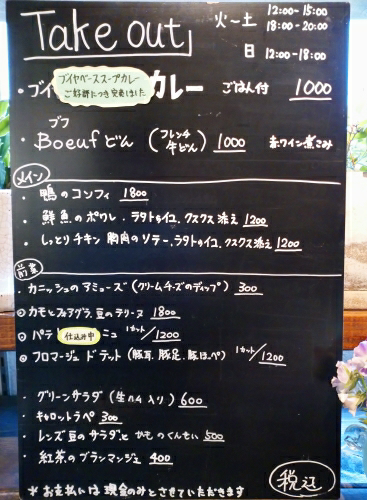 Take out
火〜土 12:00-15:00
18:00-20:00
日 12:00-18:00
・ブイヤベーススープカレー
ご好評につき完売しました
カレー ごはん付 1000
ブフ
・Boeufどん (フレンチ牛どん) 1000 赤ワイン煮こみ
メイン
・鴨のコンフィ 1800
・鮮魚のポワレ、ラタトゥイユ、クスクス添え 1200
・しっとりチキン胸肉のソテー、ラタトゥイユ、クスクス添え 1200
前菜
・カニッシュのアミューズ(クリームチーズのディップ) 300
カモとフォアグラ、豆のテリーヌ 1800
パテ 仕込み中 ニュ 1カット/1200
フロマージュ ド テット (豚耳、豚足、豚ほっぺ) 1カット/1200
・グリーンサラダ (生ハム入り) 600
・キャロットラペ 300
・レンズ豆のサラダと かものくんせい 500
・紅茶のブランマンジェ 400
税込
※お支払いは現金のみとさせていただきます